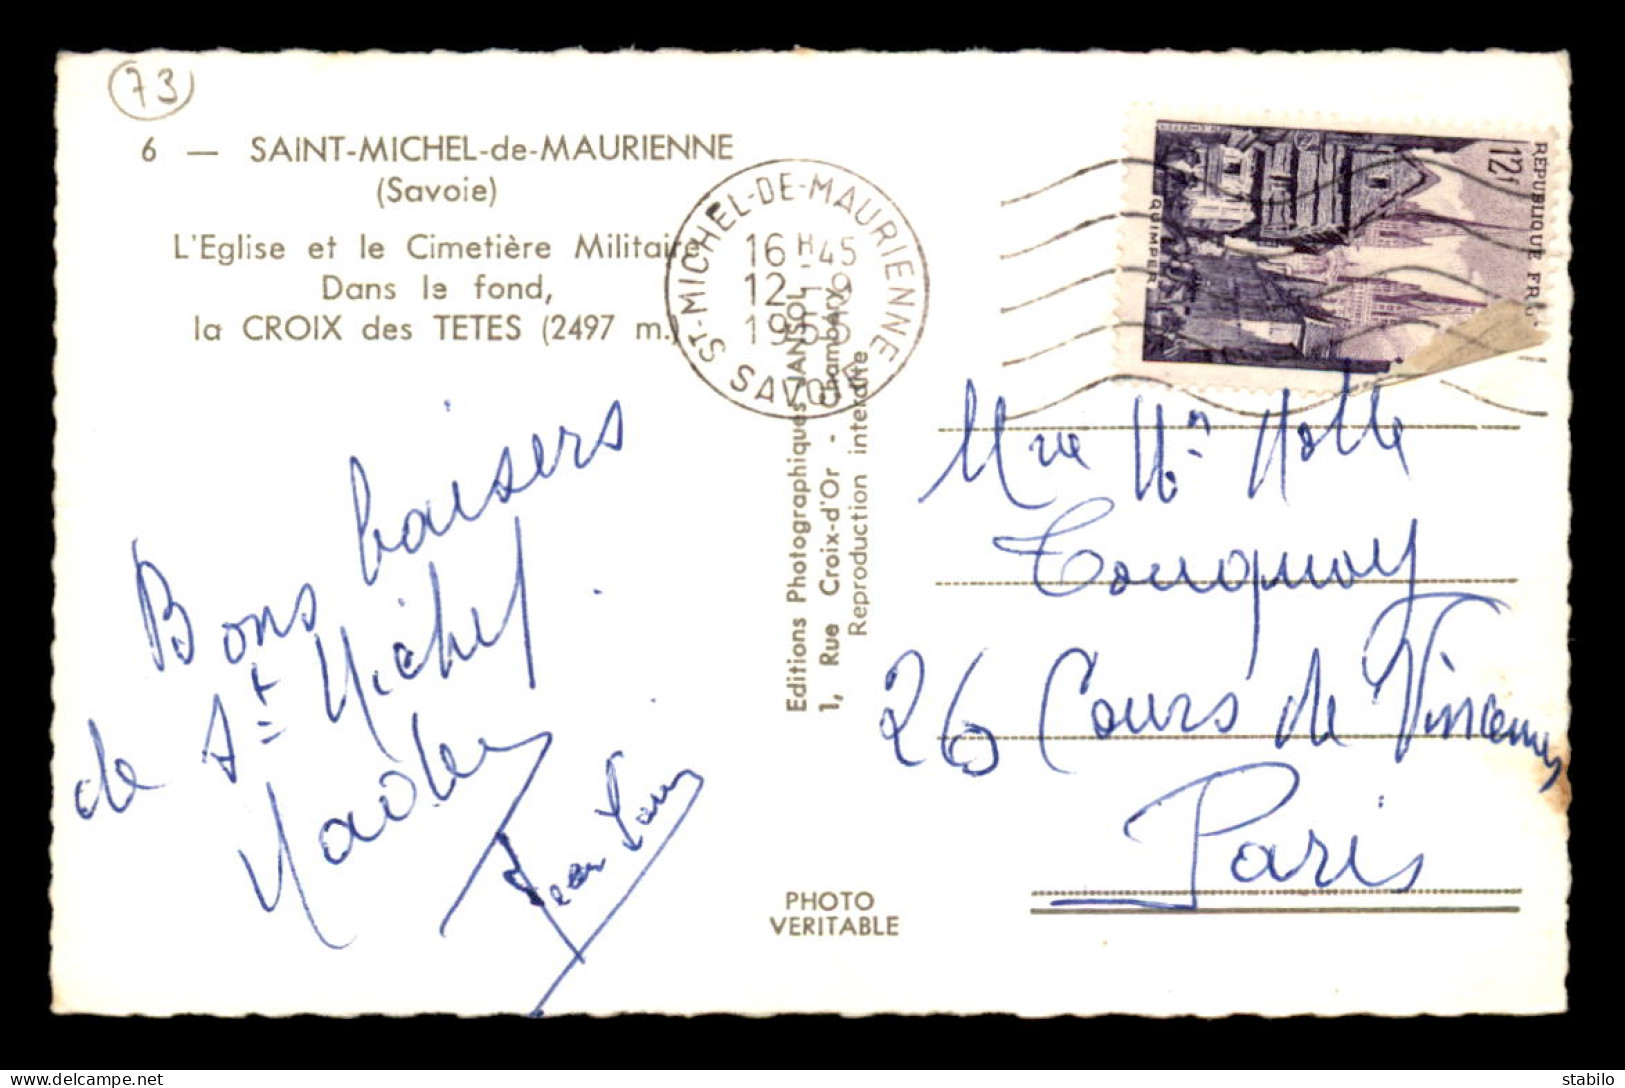 73
6 — SAINT-MICHEL-de-MAURIENNE
(Savoie)
L'Eglise et le Cimetière Militaire
Dans le fond,
la CROIX des TETES (2497 m.)
ST-MICHEL-DE-MAURIENNE
16 H 45
12 - 9
1955
SAVOIE
REPUBLIQUE FR
12f
QUIMPER
Bons baisers
de St Michel
Jean Louis
Editions Photographiques JANSOL
1, Rue Croix-d'Or - Chambéry
Reproduction interdite
PHOTO
VERITABLE
26 Cours de Vincennes
Paris
delcampe.net
stab82